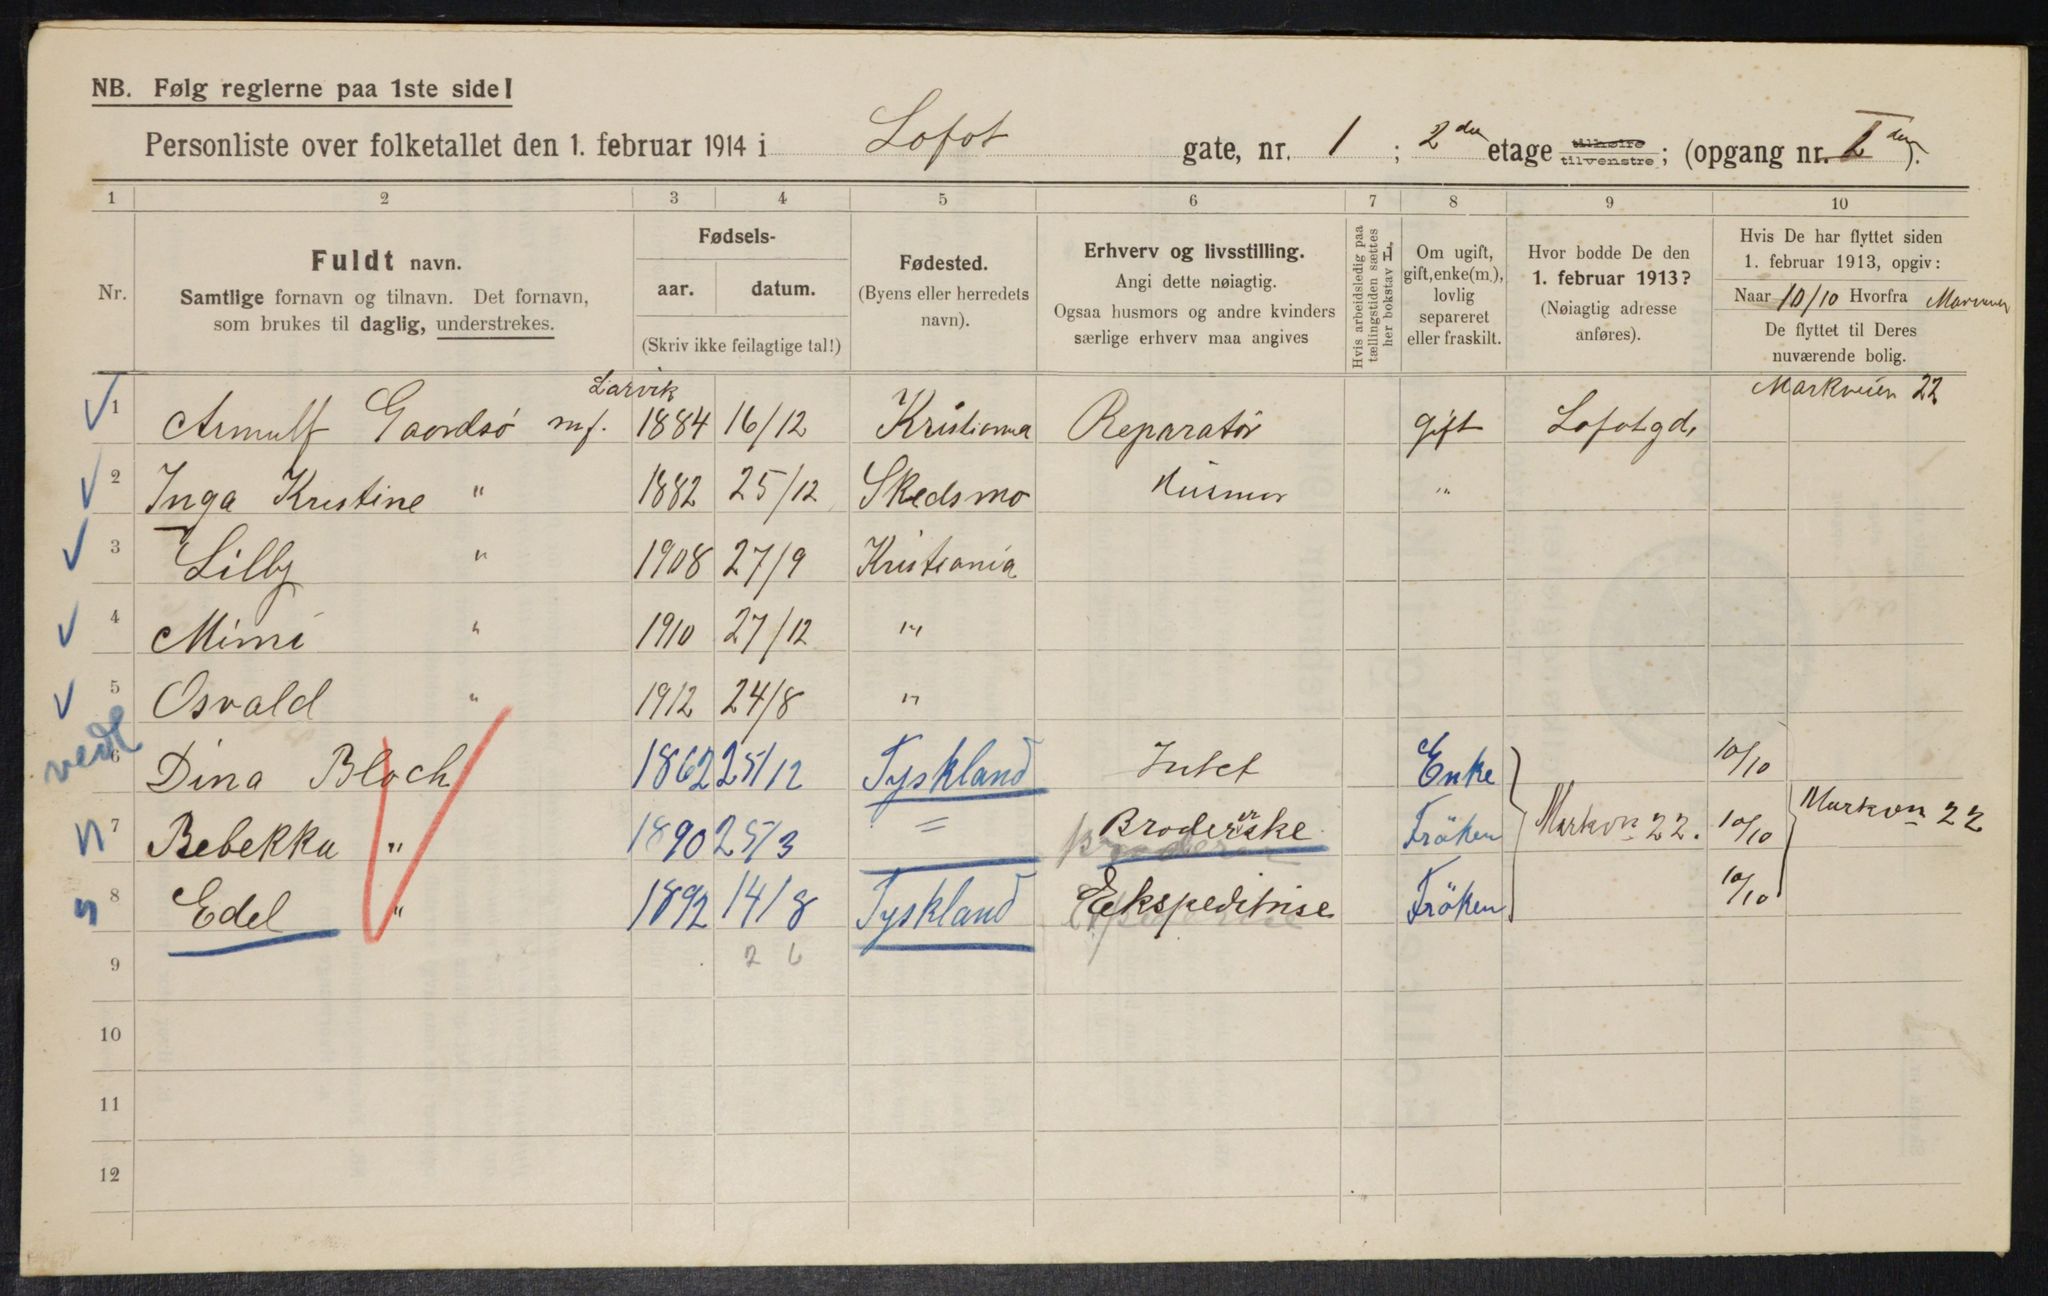 NB. Følg reglerne paa 1ste side!
Personliste over folketallet den 1. februar 1914 i Lofot gate, nr. 1 ; 2den etage tilhøire tilvenstre ; (opgang nr. I den ).
1 2 3 4 5 6 7 8 9 10
Nr.
Fuldt navn.
Samtlige fornavn og tilnavn. Det fornavn,
som brukes til daglig, understrekes.
Fødsels-
aar. datum.
(Skriv ikke feilagtige tal!)
Fødested.
(Byens eller herredets
navn).
Erhverv og livsstilling.
Angi dette nøiagtig.
Ogsaa husmors og andre kvinders
særlige erhverv maa angives
Hvis arbeidsledig paa
tællingstiden sættes
her bokstav L.
Om ugift,
gift, enke(m.),
lovlig
separeret
eller fraskilt.
Hvor bodde De den
1. februar 1913?
(Nøiagtig adresse
anføres).
Hvis De har flyttet siden
1. februar 1913, opgiv:
Naar 10/10 Hvorfra
De flyttet til Deres
nuværende bolig.
Larvik Markveien 22
1 Arnulf Gaardsø m.f. 1884 16/12 Kristiania Reparatør gift Lofotgd,
2 Inga Kristine " 1882 25/12 Skedsmo Husmor "
3 Lilly " 1908 27/9 Kristiania
4 Mimi " 1910 27/12 "
5 Osvald " 1912 24/8 "
vedl
6 Dina Bloch 1862 25/12 Tyskland Intet Enke 10/10
7 Bebekka " 1890 25/3 = Broderske Fröken Markvn 22. 10/10 Markvn 22
8 Edel " 1892 14/8 Tyskland Ekspeditrise Fröken 10/10
9 2 6
10
11
12